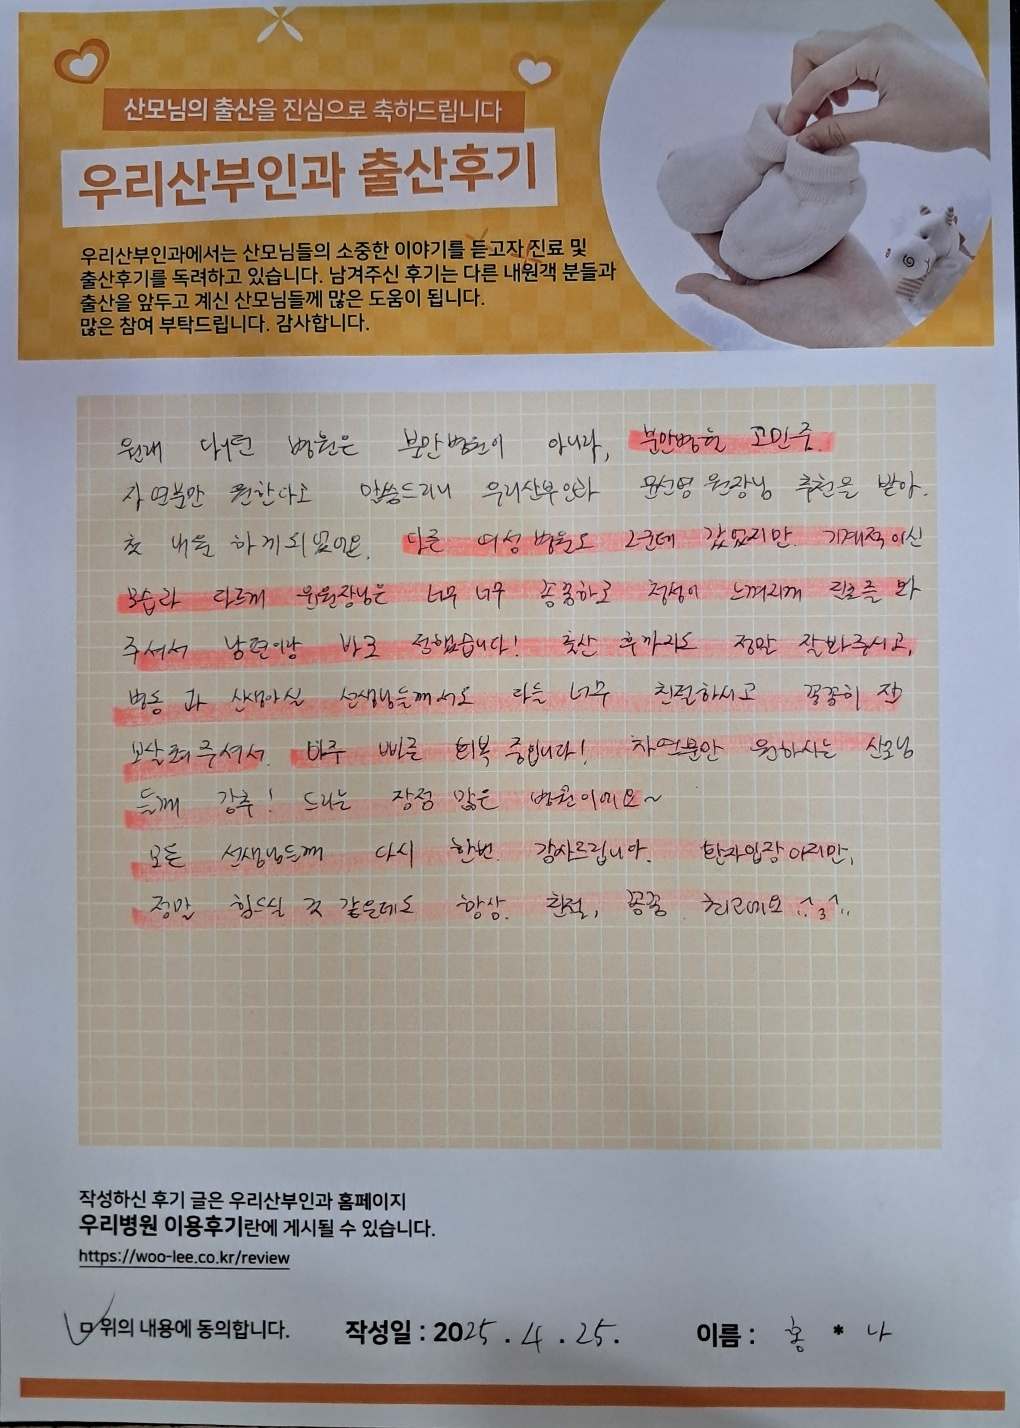 산모님의 출산을 진심으로 축하드립니다
우리산부인과 출산후기
우리산부인과에서는 산모님들의 소중한 이야기를 듣고자 진료 및
출산후기를 독려하고 있습니다. 남겨주신 후기는 다른 내원객 분들과
출산을 앞두고 계신 산모님들께 많은 도움이 됩니다.
많은 참여 부탁드립니다. 감사합니다.
원래 다니던 병원은 분만병원이 아니라, 분만병원 고민 중.
자연분만 원한다고 말씀드리니 우리산부인과 윤선영 원장님 추천을 받아.
첫 내원 하게되었어요. 다른 여성병원도 2군데 갔었지만. 기계적이신
모습과 다르게 원장님은 너무 너무 꼼꼼하고 정성이 느껴지게 진료를 봐
주셔서 남편이랑 바로 정했습니다! 출산 후까지도 정말 잘봐주시고,
병동 과 신생아실 선생님들께서도 다들 너무 친절하시고 꼼꼼히 잘
보살펴주셔서. 아주 빠른 회복 중입니다! 자연분만 원하시는 산모님
들께 강추! 드리는 장점 많은 병원이에요~
모든 선생님들께 다시 한번. 감사드립니다. 환자입장이지만,
정말 힘드실 것 같은데도 항상. 친절, 꼼꼼 최고예요
작성하신 후기 글은 우리산부인과 홈페이지
우리병원 이용후기란에 게시될 수 있습니다.
https://woo-lee.co.kr/review
위의 내용에 동의합니다. 작성일 : 2025 . 4 . 25. 이름 : 홍 * 나